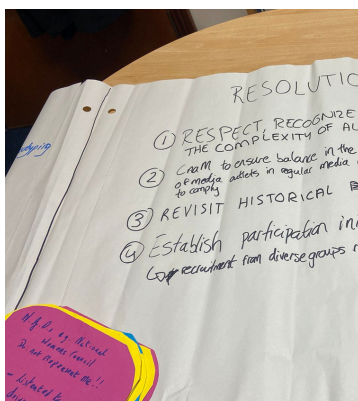 RESOLUTIO
① RESPECT, RECOGNIZE
THE COMPLEXITY OF AL
② CnaM to ensure balance in the
of media outlets in regular media
to comply
③ REVISIT HISTORICAL
④ Establish participation ini
recruitment from diverse groups
udyping
N.G.Os eg. National
Womens Council
Do not Represent Me!!
- Listened to